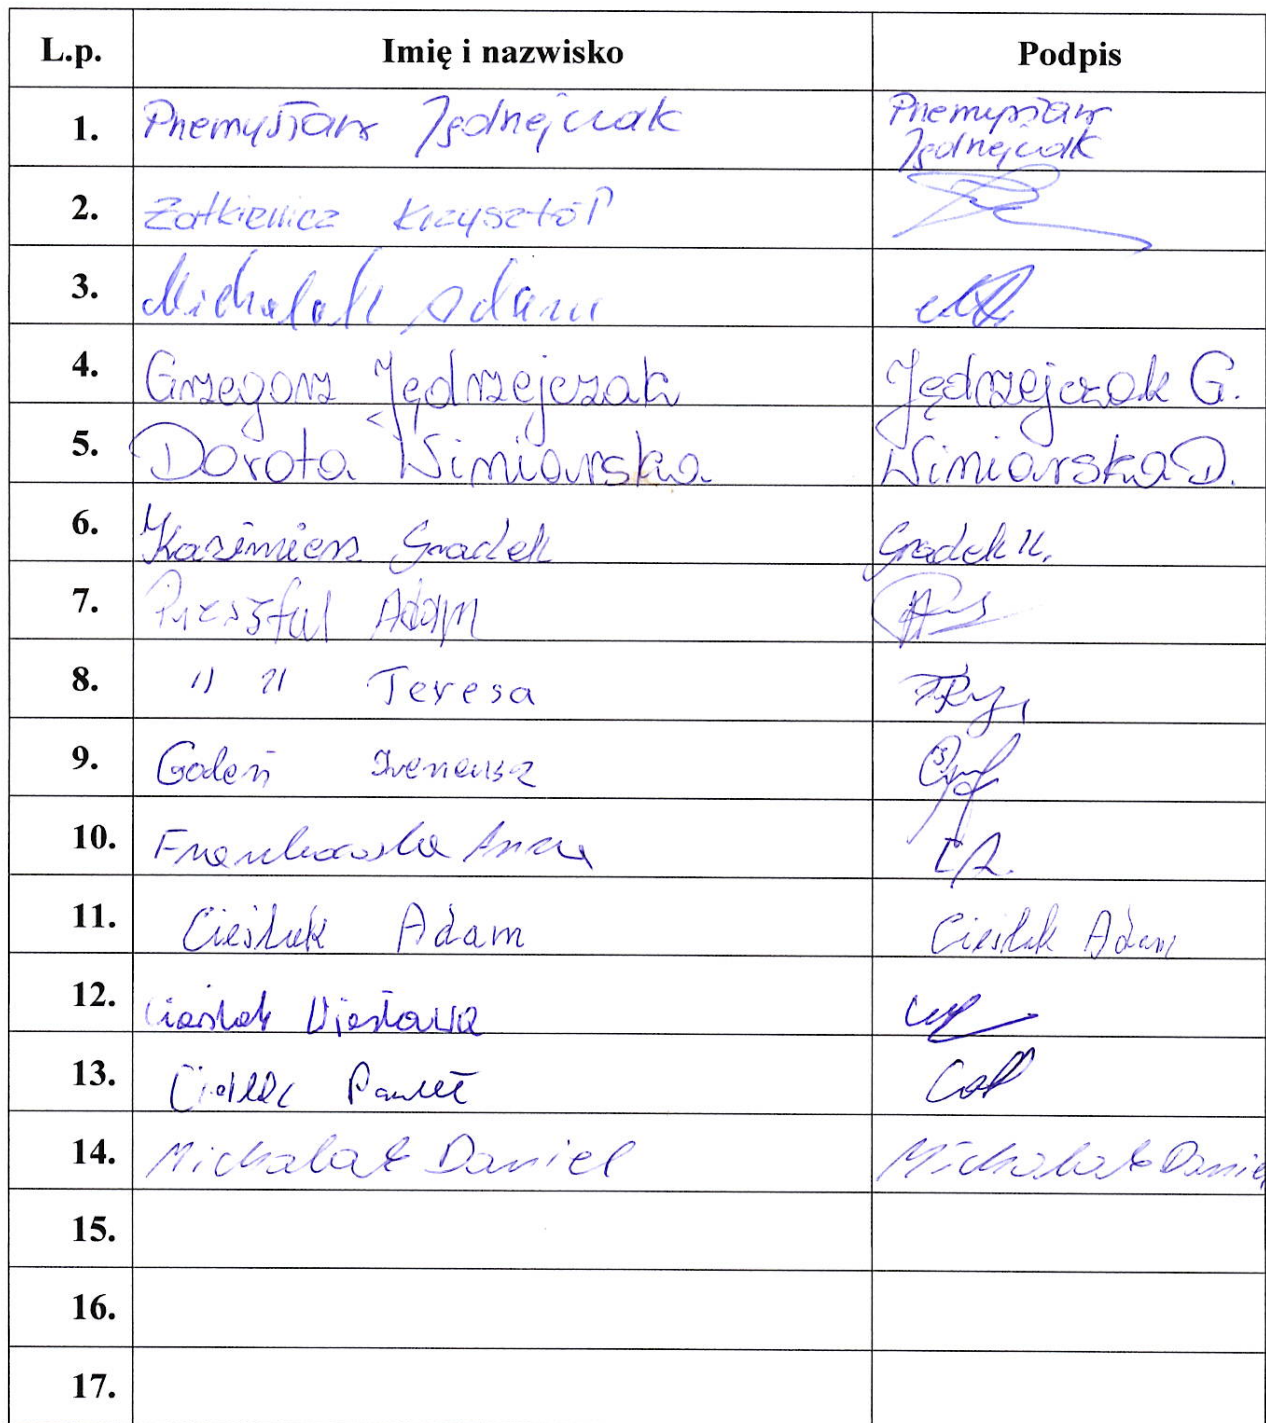 L.p. Imię i nazwisko Podpis
1. Przemysław Jędrzejczak Przemysław
Jędrzejczak
2. Zatkiewicz Krzysztof
3. Michalak Adam
4. Grzegorz Jędrzejczak Jędrzejczak G.
5. Dorota Winiarska Winiarska D.
6. Kazimierz Gradek Gradek K.
7. Adam
8. " " Teresa
9. Godeń Ireneusz
10. Frankowska Anna
11. Cieślak Adam Cieślak Adam
12. Cieślak Wiesława
13. Paweł
14. Michalak Daniel Michalak Daniel
15.
16.
17.